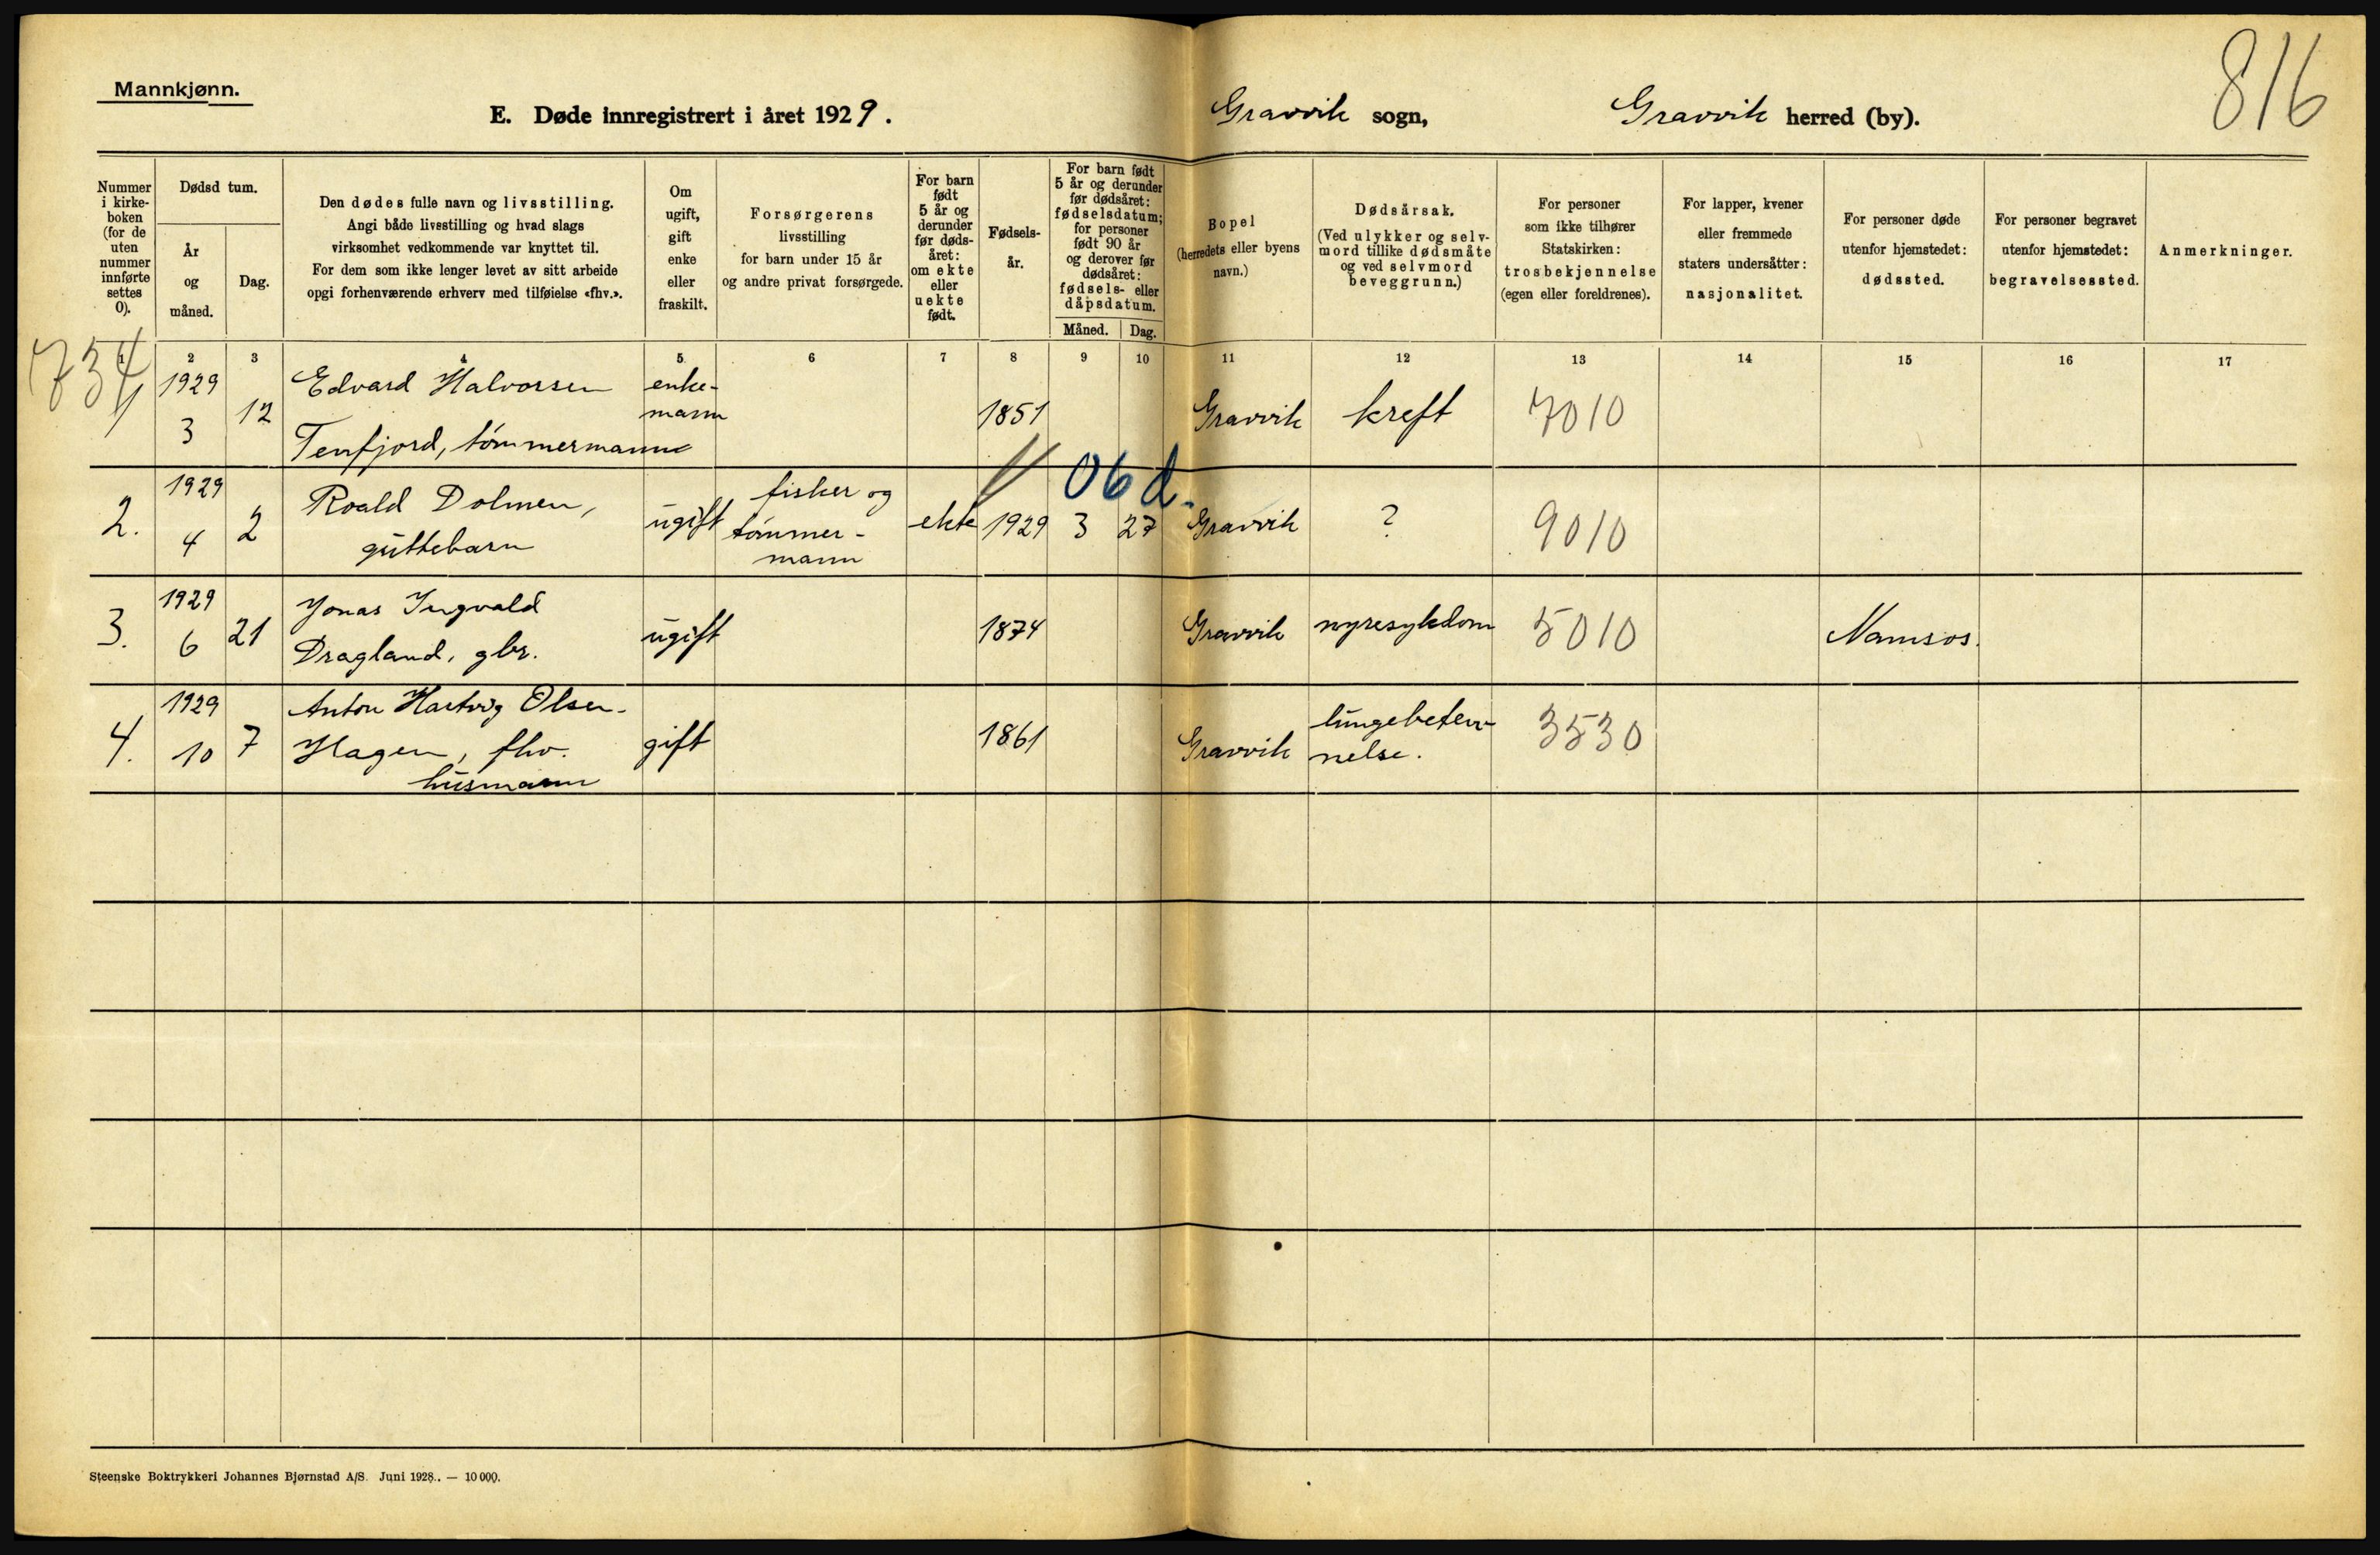 Mannkjønn.
E. Døde innregistrert i året 1929.
Gravvik sogn, Gravvik herred (by).
816
Nummer i kirke-boken (for de uten nummer innførte settes 0).
Dødsd tum.
År og måned.
Dag.
Den dødes fulle navn og livsstilling.
Angi både livsstilling og hvad slags
virksomhet vedkommende var knyttet til.
For dem som ikke lenger levet av sitt arbeide
opgi forhenværende erhverv med tilføielse «fhv.».
Om ugift, gift enke eller fraskilt.
Forsørgerens
livsstilling
for barn under 15 år
og andre privat forsørgede.
For barn født 5 år og derunder før døds-året: om ekte eller uekte født.
Fødsels-år.
For barn født
5 år og derunder
før dødsåret:
fødselsdatum;
for personer
født 90 år
og derover før
dødsåret:
fødsels- eller
dåpsdatum.
Måned. Dag.
Bopel
(herredets eller byens
navn.)
Dødsårsak.
(Ved ulykker og selv-
mord tillike dødsmåte
og ved selvmord
beveggrunn.)
For personer
som ikke tilhører
Statskirken:
trosbekjennelse
(egen eller foreldrenes).
For lapper, kvener
eller fremmede
staters undersåtter:
nasjonalitet.
For personer døde
utenfor hjemstedet:
dødssted.
For personer begravet
utenfor hjemstedet:
begravelsessted.
Anmerkninger.
1 2 3 4 5 6 7 8 9 10 11 12 13 14 15 16 17
734
1 1929 3 12 Edvard Halvorsen
Tenfjord, tømmermann
enke-
mann
1851 Gravvik kreft 7010
06 d.
2. 1929 4 2 Roald Dolmen,
guttebarn
ugift
fisker og
tømmer-
mann
ekte 1929 3 27 Gravvik ? 9010
3. 1929 6 21 Jonas Ingvald
Dragland, gbr.
ugift 1874 Gravvik nyresykdom 5010 Namsos.
4. 1929 10 7 Anton Hartvig Olsen-
Hagen, fhv.
husmann
gift 1861 Gravvik
lungebeten-
nelse.
3530
Steenske Boktrykkeri Johannes Bjørnstad A/S. Juni 1928.. — 10 000.